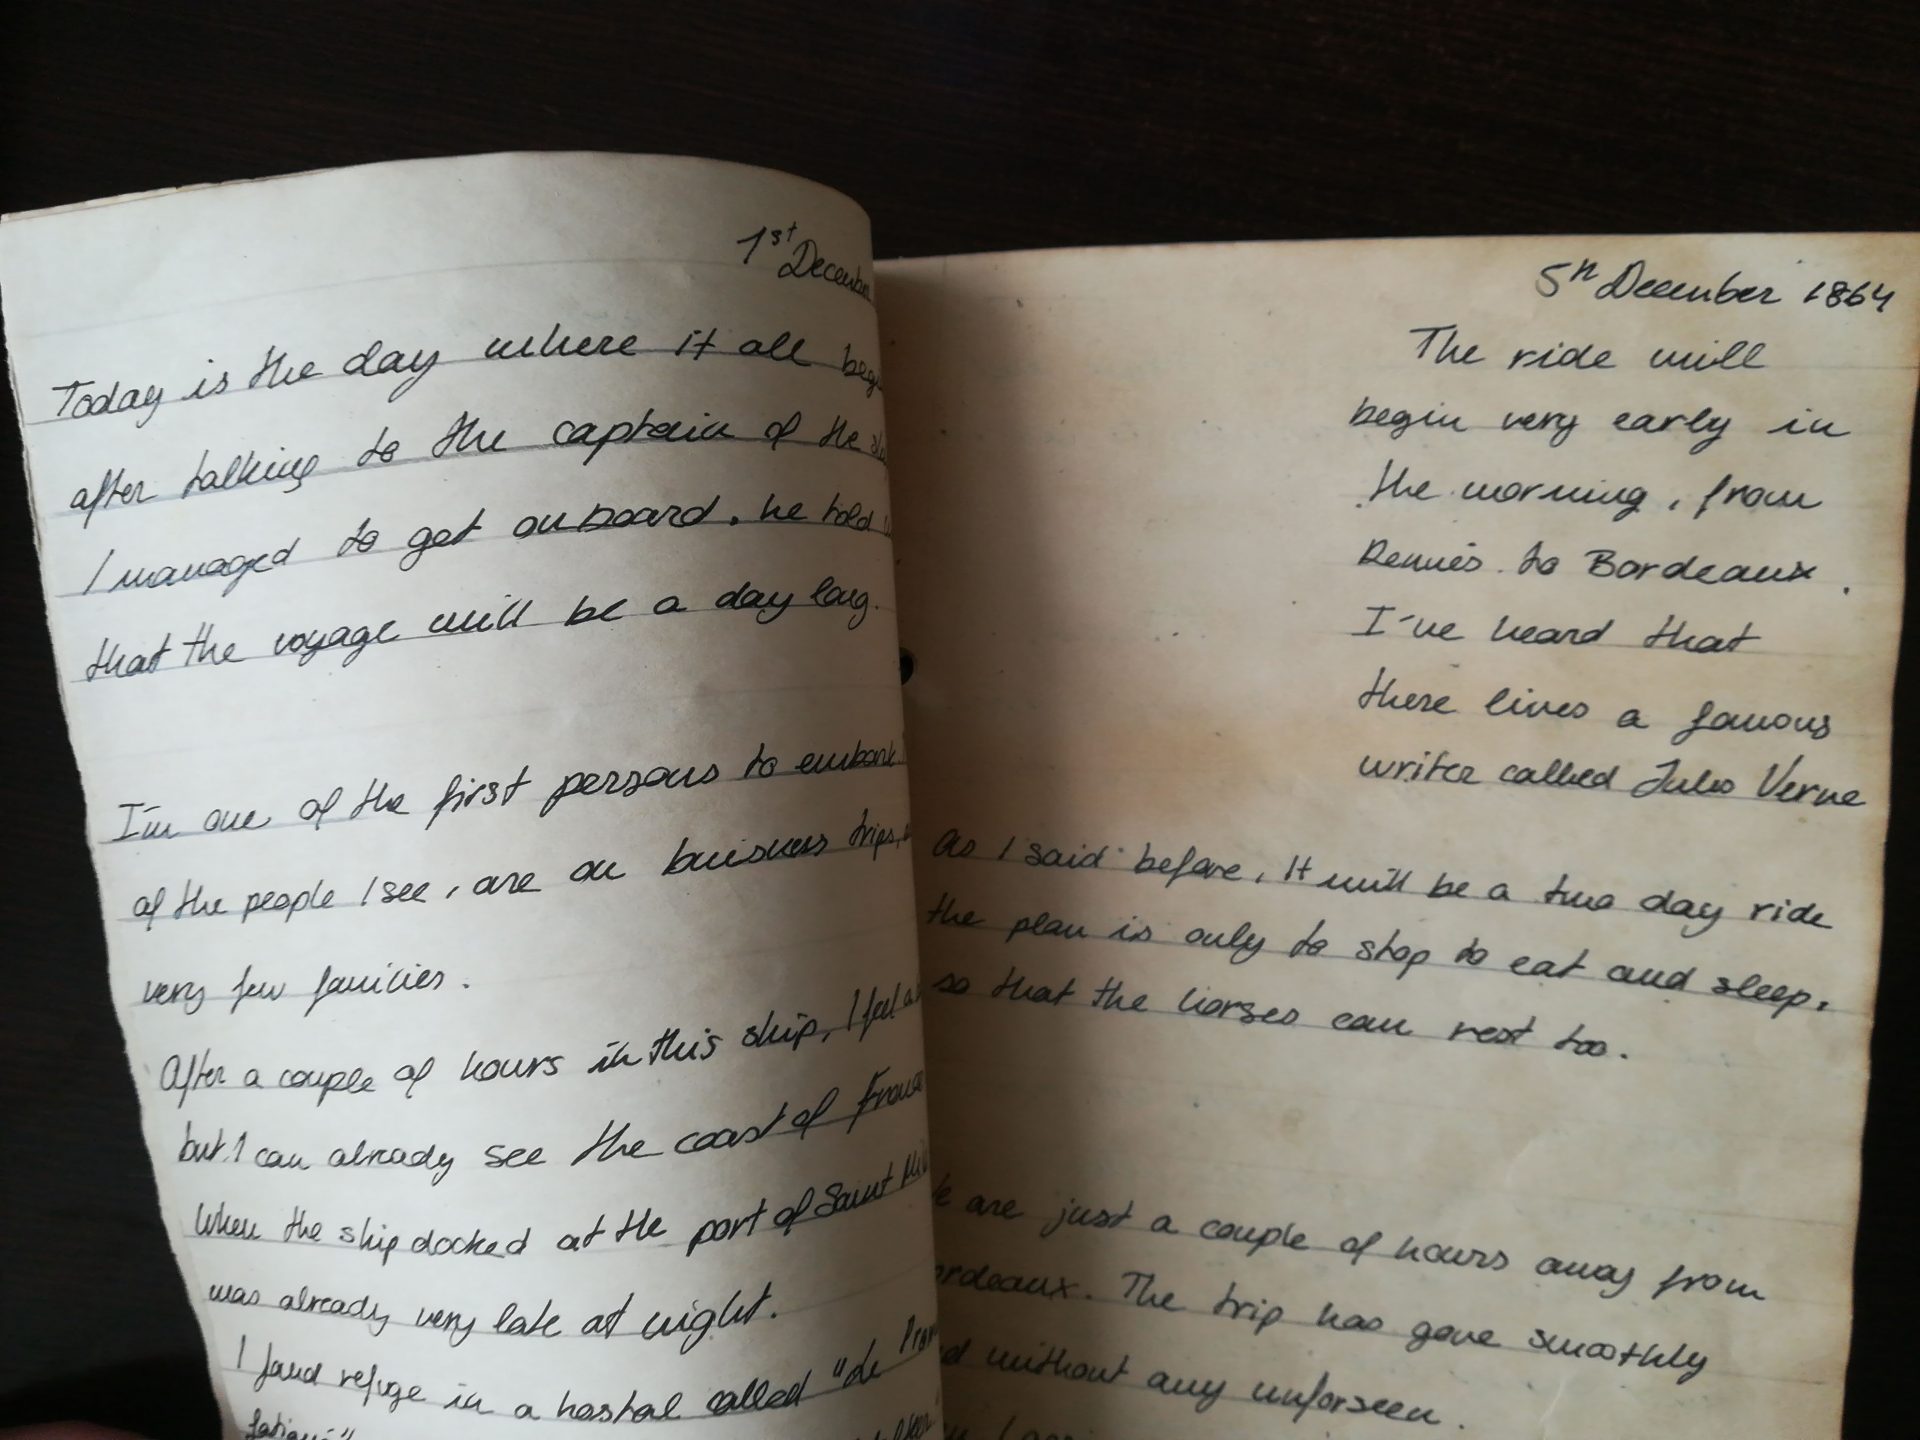 1st December
Today is the day where it all
after talking to the captain of the
I managed to get onboard. he told
that the voyage will be a day long.
I'm one of the first persons to embark
of the people I see, are on buisness trips,
very few families.
After a couple of hours in this ship, I feel
but I can already see the coast of
When the ship docked at the port of Saint
was already very late at night.
I faud refuge in a hostal called "de
5th December 1864
The ride will
begin very early in
the morning, from
Rennes to Bordeaux.
I've heard that
there lives a famous
writer called Jules Verne
As I said before, It will be a two day ride
the plan is only to stop to eat and sleep,
so that the horses can rest too.
are just a couple of hours away from
ordeaux. The trip has gone smoothly
without any unforseen.